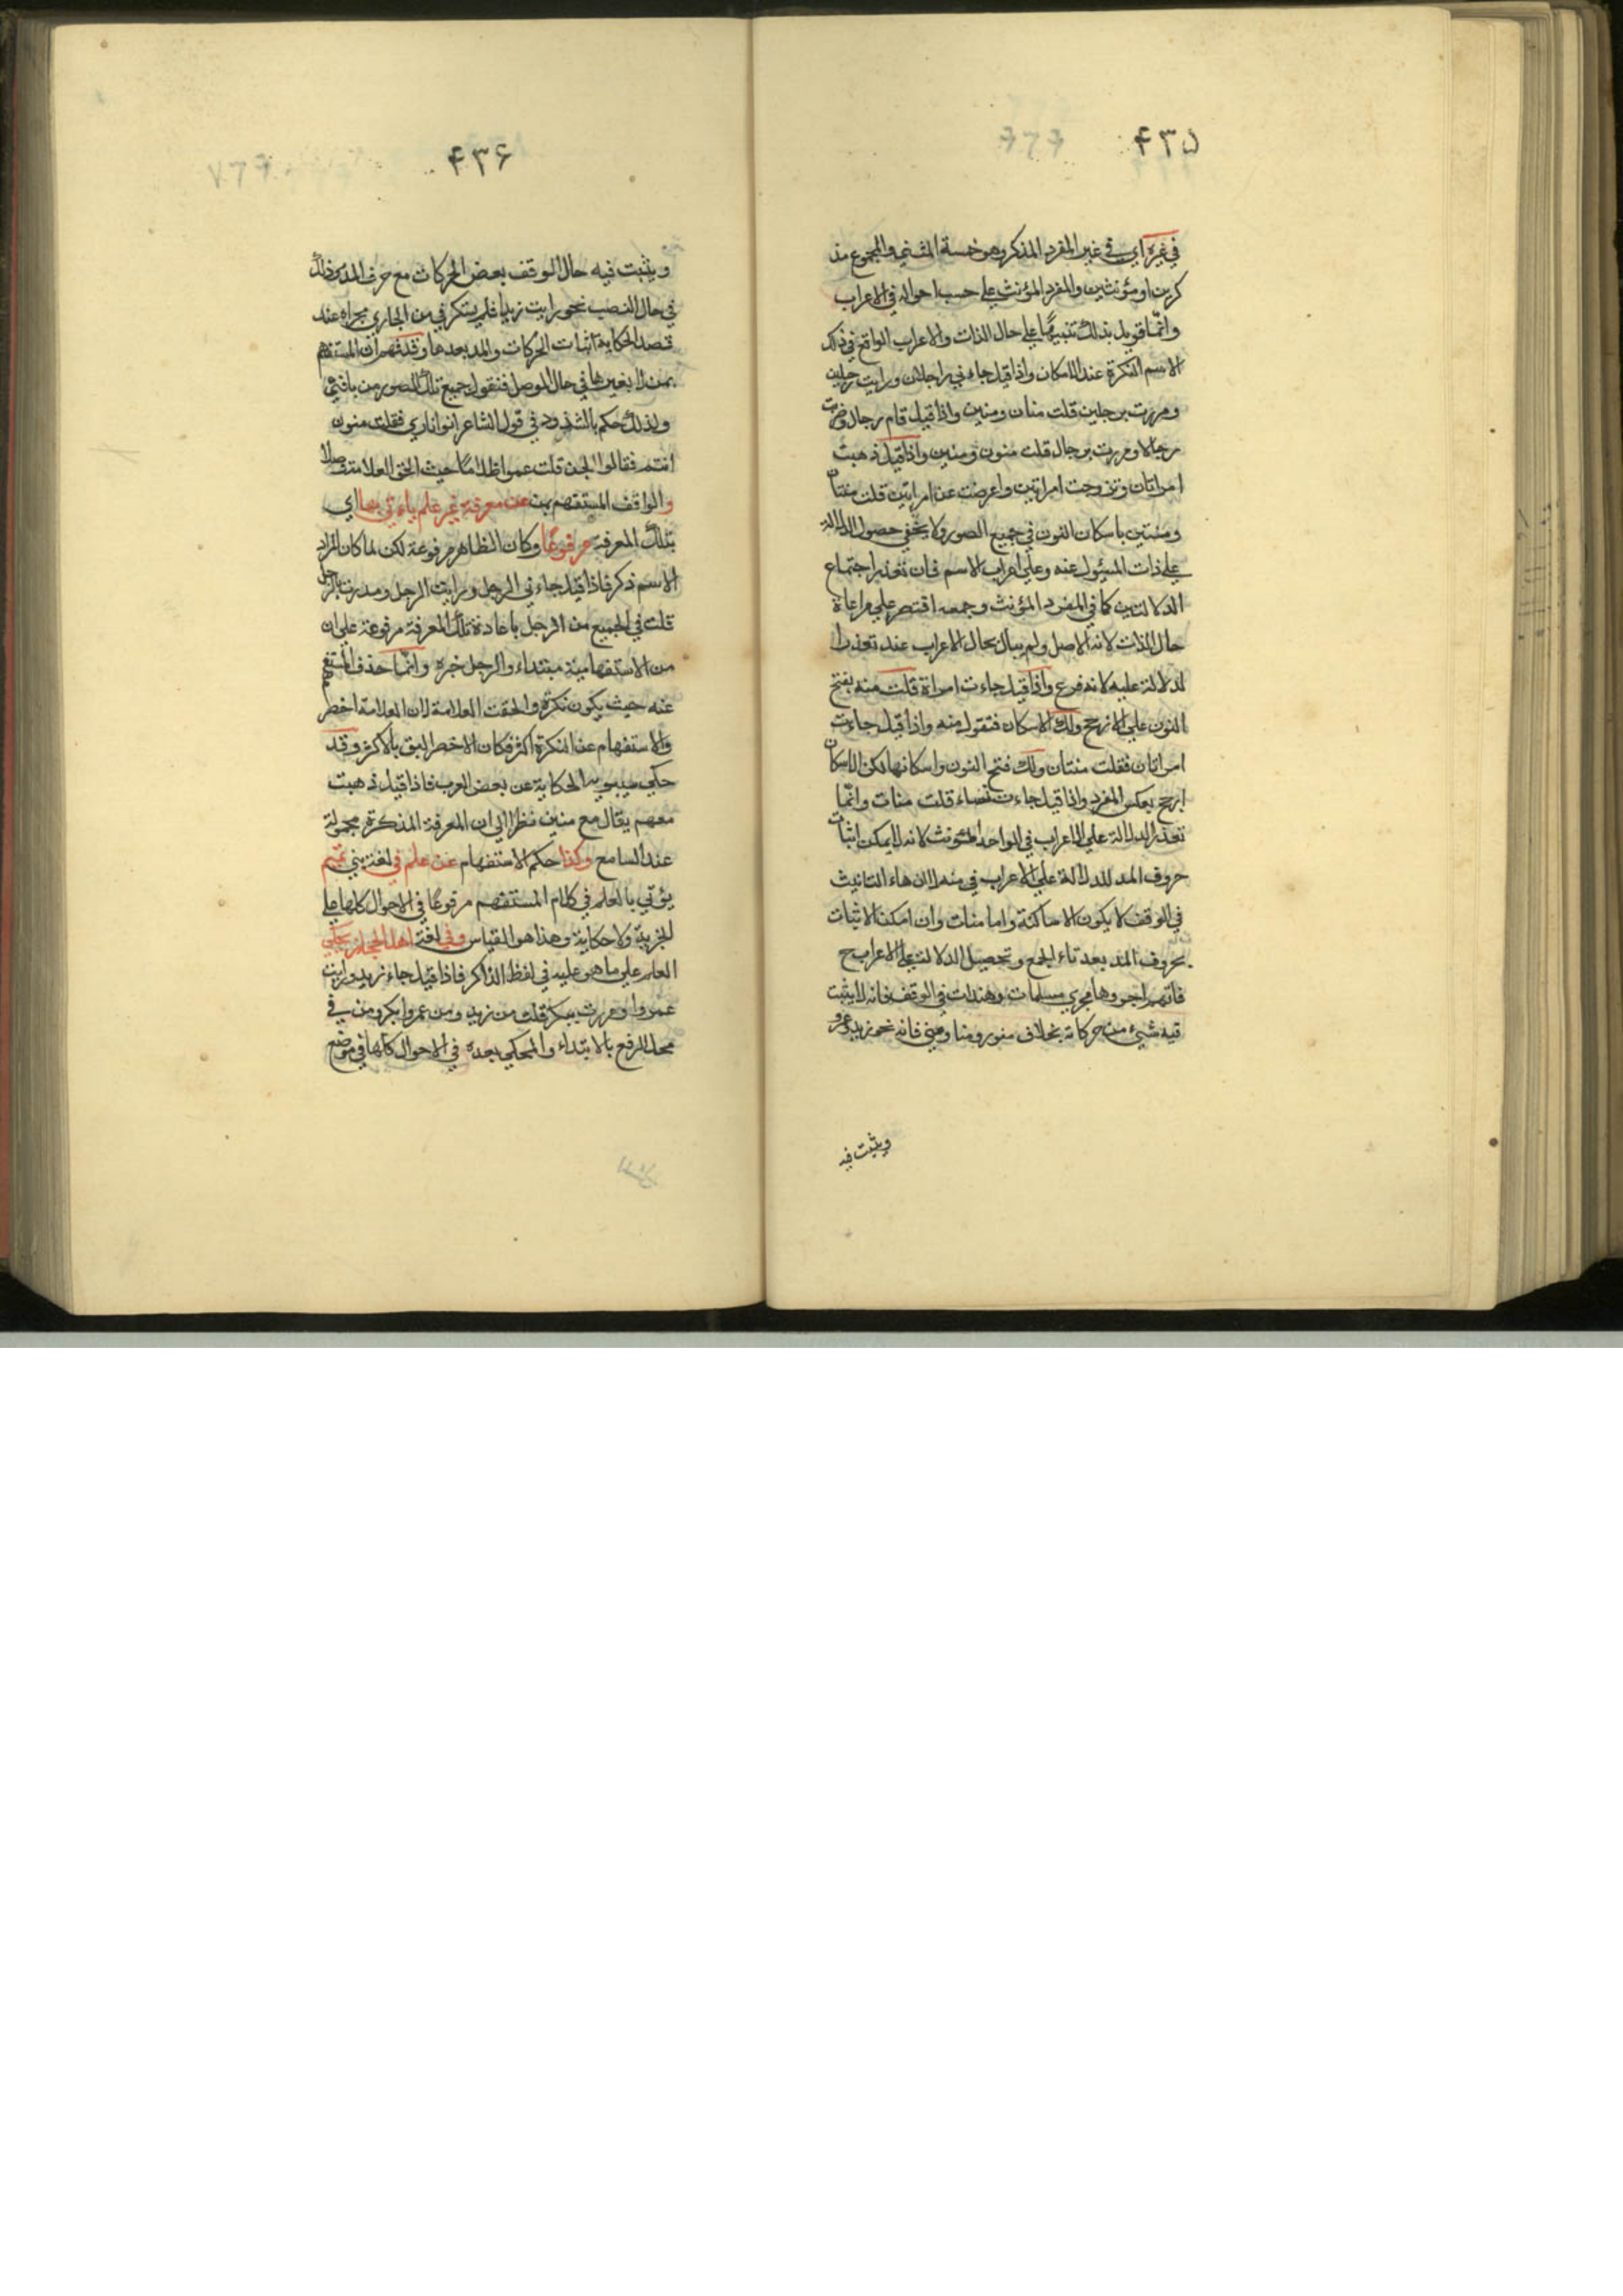 ۴۳۵
في غيره اي في غير المفرد المذكر وهو خمسة المثنى والمجموع مذ
كرين او مؤنثين والمفرد المؤنث على حسب احواله في الاعراب
وانما قوبل بذلك تنبيها على حال الذات والاعراب الواقع في ذلك
الاسم النكرة عند الامكان واذا قيل جاءني رجلان ورايت رجلين
ومررت برجلين قلت منان ومنين واذا قيل قام رجال وضربت
رجالا ومررت برجال قلت منون ومنين واذا قيل ذهبت
امراتان وتزوجت امراتين واعرضت عن امراتين قلت منتان
ومنتين باسكان النون في جميع الصور ولا يخفى حصول الدلالة
على ذات المسئول عنه وعلى اعراب الاسم فان تعذر اجتماع
الدلالتين كما في المفرد المؤنث وجمعه اقتصر على مراعاة
حال الذات لانه الاصل ولم يبال بحال الاعراب عند تعذر ا
لدلالة عليه لانه فرع واذا قيل جاءت امراة قلت منه بفتح
النون على الارجح ولك الاسكان فتقول منه واذا قيل جاءت
امراتان فقلت منتان ولك فتح النون واسكانها لكن الاسكان
ارجح بعكس المفرد واذا قيل جاءت نساء قلت منات وانما
تعذر الدلالة على الاعراب في الواحد المؤنث لانه لا يمكن اثبات
حروف المد للدلالة على الاعراب في منه لان هاء التانيث
في الوقف لا يكون الا ساكنة واما منات وان امكن الاثبات
بحروف المد بعد تاء الجمع وتحصيل الدلالة على الاعراب ح
فانهم اجروها مجرى مسلمات وهندات في الوقف فانه لا يثبت
فيه شيء من حركاته بخلاف منو ومنا ومني فانه نحو زيد وعمرو
ويثبت فيه
۴۳۶
ويثبت فيه حال الوقف بعض الحركات مع حرف المد وذلك
في حال النصب نحو رايت زيدا فلم يستنكر في من الجاري مجراه عند
قصد الحكاية اثبات الحركات والمد بعدها وقد فهم ان المستفهم
بمن لا يغيرها في حال الوصل فتقول جميع تلك الصور من يا فتى
ولذلك حكم بالشذوذ في قول الشاعر اتوا ناري فقلت منون
انتم فقالوا الجن قلت عموا ظلاما حيث الحق العلامة وصلا
والواقف المستفهم بمن عن معرفة غير علم ياءتي بها اي
بتلك المعرفة مرفوعا وكان الظاهر مرفوعة لكن لما كان المراد
الاسم ذكر فاذا قيل جاءني الرجل ورايت الرجل ومررت بالرجل
قلت في الجميع من الرجل باعادة تلك المعرفة مرفوعة على ان
من الاستفهامية مبتداء والرجل خبره وانما حذف المستفهم
عنه حيث يكون نكرة والحقت العلامة لان العلامة اخصر
والاستفهام عن النكرة اكثر فكان الاخصر اليق بالاكثر وقد
حكى سيبويه الحكاية عن بعض العرب فاذا قيل ذهبت
معهم يقال مع منين نظرا الى ان المعرفة المذكرة مجهولة
عند السامع وكذا حكم الاستفهام عن علم في لغة بني تميم
يؤتى بالعلم في كلام المستفهم مرفوعا في الاحوال كلها على
الخبرية ولا حكاية وهذا هو القياس وفي لغة اهل الحجاز يحكى
العلم على ما هو عليه في لفظ الذاكر فاذا قيل جاء زيد ورايت
عمروا ومررت ببكر قلت من زيد ومن عمروا بكر ومن في
محل الرفع بالابتداء والمحكي بعده في الاحوال كلها في موضع